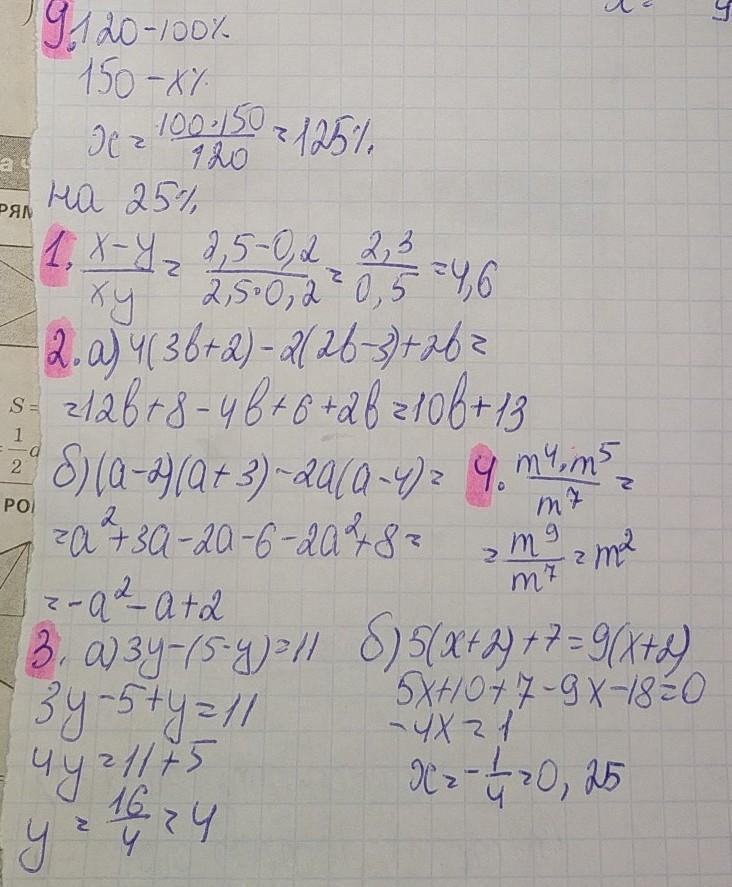 9. 120-100%
150-x%
x = \frac{100·150}{120} = 125%.
на 25%
1. \frac{x-y}{xy} = \frac{2,5-0,2}{2,5·0,2} = \frac{2,3}{0,5} = 4,6
2. а) 4(3b+2)-2(2b-3)+2b=
=12b+8-4b+6+2b=10b+13
б) (a-2)(a+3)-2a(a-4)=
=a²+3a-2a-6-2a²+8=
=-a²-a+2
4. \frac{m⁴·m⁵}{m⁷} =
= \frac{m⁹}{m⁷} = m²
3. а) 3y-(5-y)=11
3y-5+y=11
4y=11+5
y = \frac{16}{4} = 4
б) 5(x+2)+7=9(x+2)
5x+10+7-9x-18=0
-4x=1
x=-\frac{1}{4}=0,25
S=
\frac{1}{2}